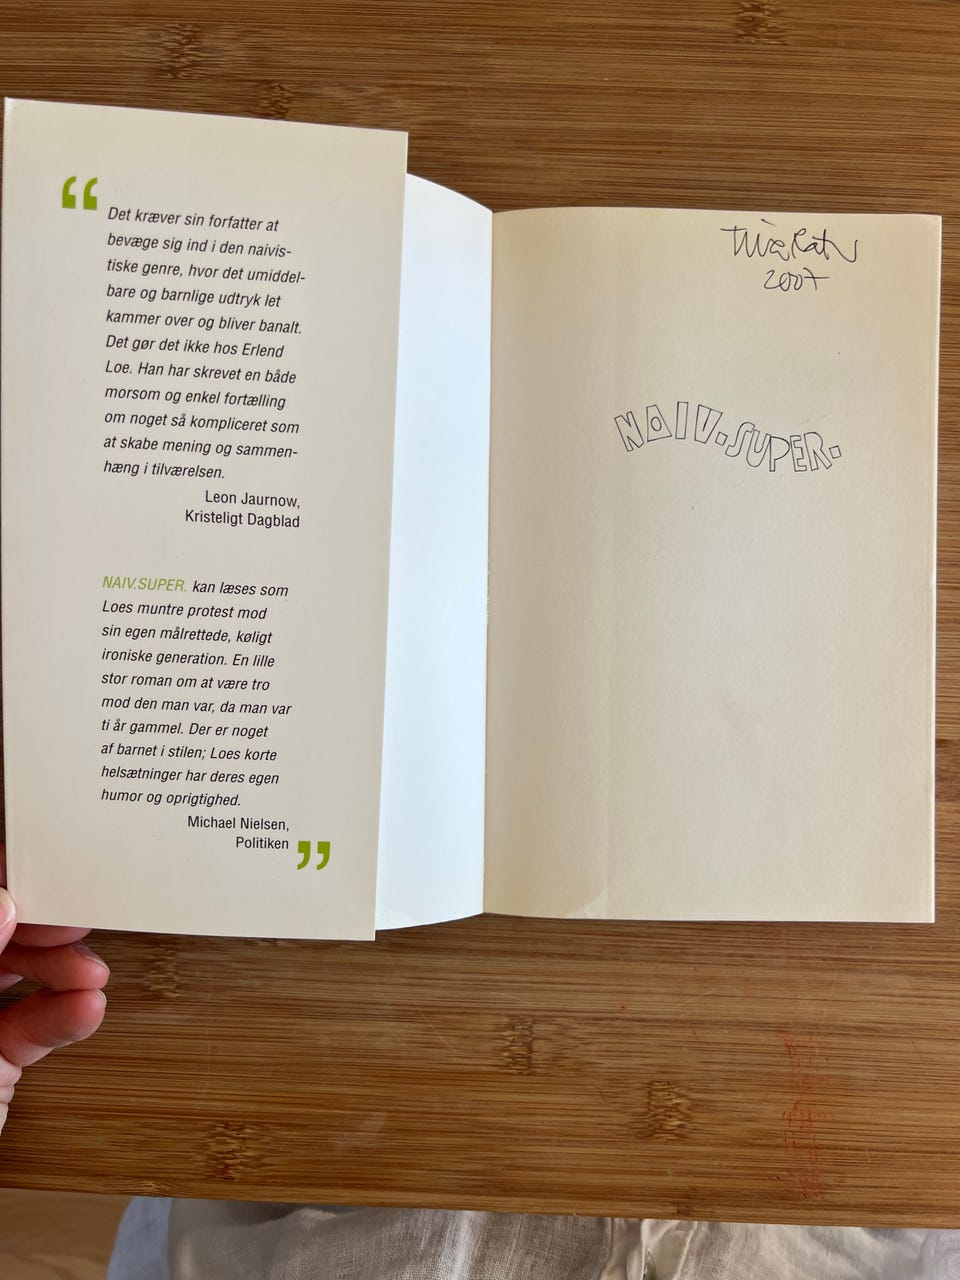 “
Det kræver sin forfatter at
bevæge sig ind i den naivis-
tiske genre, hvor det umiddel-
bare og barnlige udtryk let
kammer over og bliver banalt.
Det gør det ikke hos Erlend
Loe. Han har skrevet en både
morsom og enkel fortælling
om noget så kompliceret som
at skabe mening og sammen-
hæng i tilværelsen.
Leon Jaurnow,
Kristeligt Dagblad
NAIV.SUPER. kan læses som
Loes muntre protest mod
sin egen målrettede, køligt
ironiske generation. En lille
stor roman om at være tro
mod den man var, da man var
ti år gammel. Der er noget
af barnet i stilen; Loes korte
helsætninger har deres egen
humor og oprigtighed.
Michael Nielsen,
Politiken ”
2007
NAIV.SUPER.